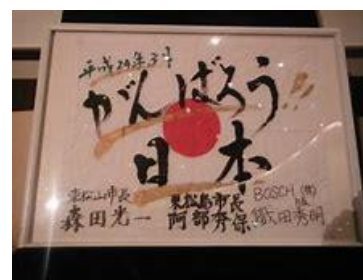 平成24年3月
がんばろう!!
日本
東松山市長
森田光一
東松島市長
阿部秀保
BOSCH(株)
織田秀明